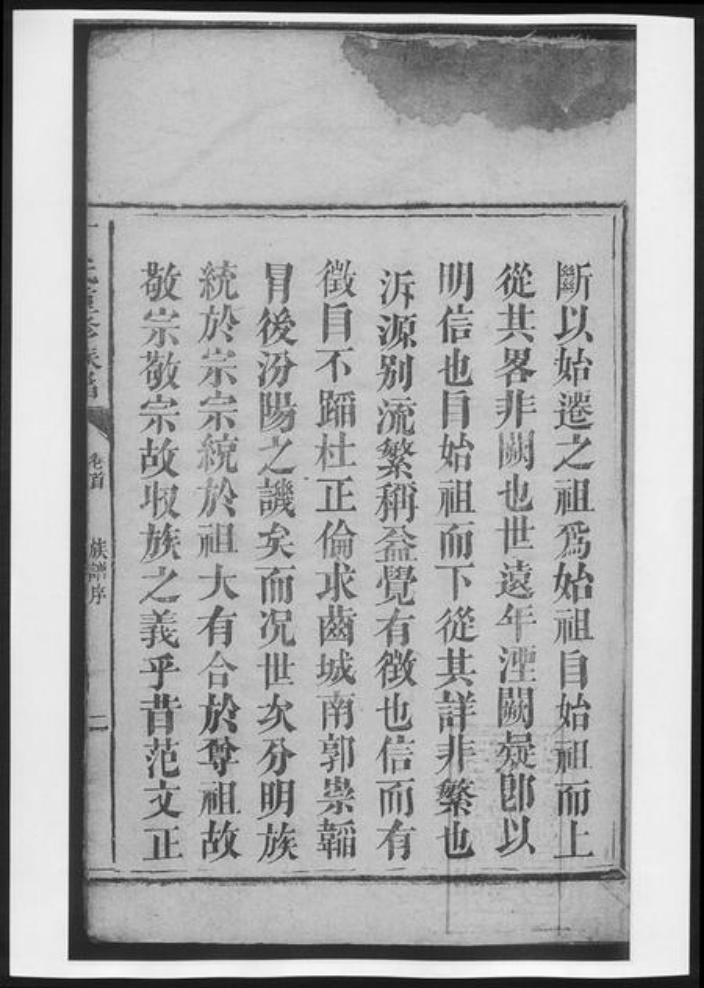 斷以始遷之祖爲始祖自始祖而上
從其畧非闕也世遠年湮闕疑卽以
明信也自始祖而下從其詳非繁也
泝源别流繁稱益覺有徴也信而有
徴自不蹈杜正倫求齒城南郭崇韜
冒後汾陽之譏矣而况世次分明族
統於宗宗統於祖大有合於尊祖故
敬宗敬宗故收族之義乎昔范文正
氏重修族譜
卷首
族譜序
二